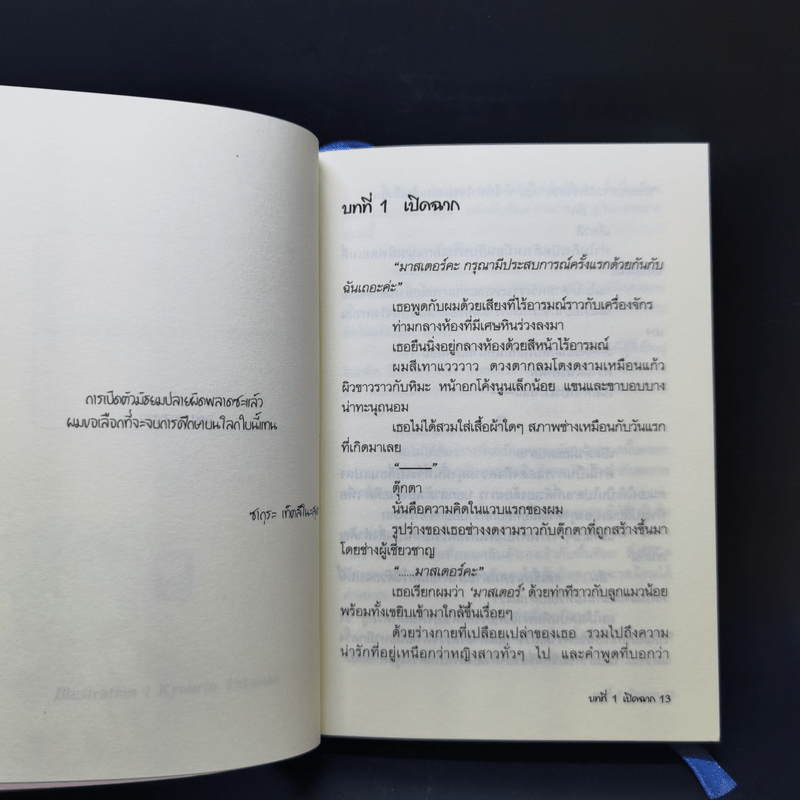 การเปิดตัวมัธยมปลายผิดพลาดซะแล้ว
ผมขอเลือกที่จะจบการศึกษาบนโลกใบนี้แทน
ซากุระ
Illustration : Kyourin
บทที่ 1 เปิดฉาก
“มาสเตอร์คะ กรุณามีประสบการณ์ครั้งแรกด้วยกันกับ
ฉันเถอะค่ะ”
เธอพูดกับผมด้วยเสียงที่ไร้อารมณ์ราวกับเครื่องจักร
ท่ามกลางห้องที่มีเศษหินร่วงลงมา
เธอยืนนิ่งอยู่กลางห้องด้วยสีหน้าไร้อารมณ์
ผมสีเทาแวววาว ดวงตากลมโตงดงามเหมือนแก้ว
ผิวขาวราวกับหิมะ หน้าอกโค้งนูนเล็กน้อย แขนและขาบอบบาง
น่าทะนุถนอม
เธอไม่ได้สวมใส่เสื้อผ้าใดๆ สภาพช่างเหมือนกับวันแรก
ที่เกิดมาเลย
“———”
ตุ๊กตา
นั่นคือความคิดในแวบแรกของผม
รูปร่างของเธอช่างงดงามราวกับตุ๊กตาที่ถูกสร้างขึ้นมา
โดยช่างผู้เชี่ยวชาญ
“......มาสเตอร์คะ”
เธอเรียกผมว่า ‘มาสเตอร์’ ด้วยท่าทีราวกับลูกแมวน้อย
พร้อมทั้งเขยิบเข้ามาใกล้ขึ้นเรื่อยๆ
ด้วยร่างกายที่เปลือยเปล่าของเธอ รวมไปถึงความ
น่ารักที่อยู่เหนือกว่าหญิงสาวทั่วๆ ไป และคำพูดที่บอกว่า
บทที่ 1 เปิดฉาก 13